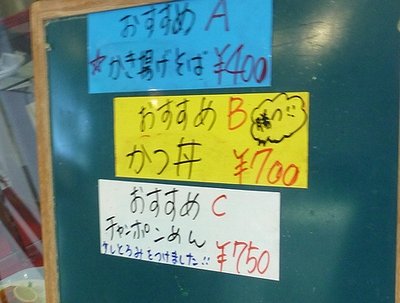 おすすめ A
☆かき揚げそば ¥400
おすすめ B 勝つ
かつ丼 ¥700
おすすめ C
チャンポンめん
少しとろみをつけました!! ¥750